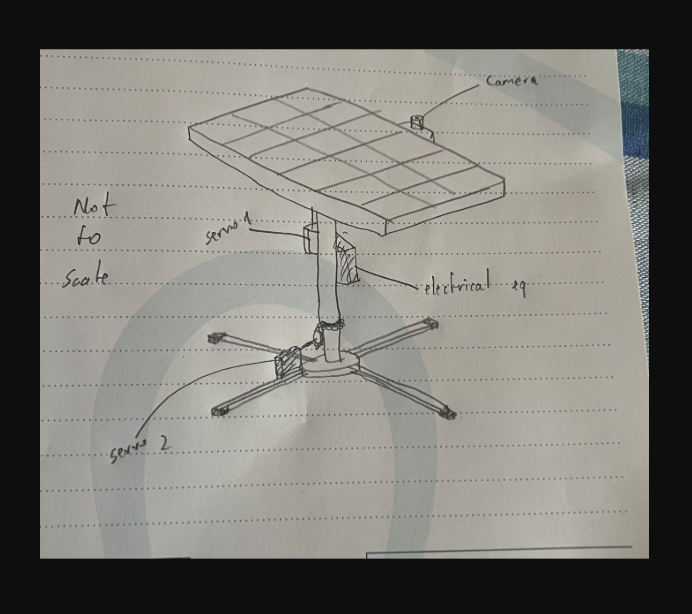 camera
Not
to
Scale
servo 1
electrical eq
servo 2